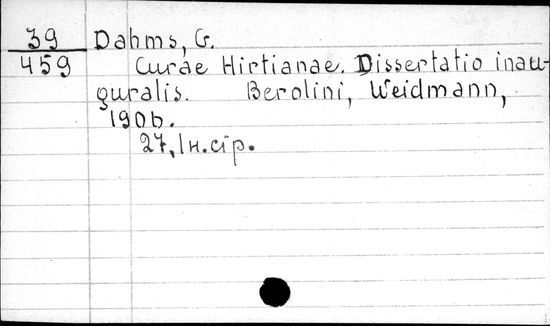 39 Dahms, G.
459 Curae Hirtianae. Dissertatio inau-
guralis. Berolini, Weidmann,
1906.
27, 1 н. стр.